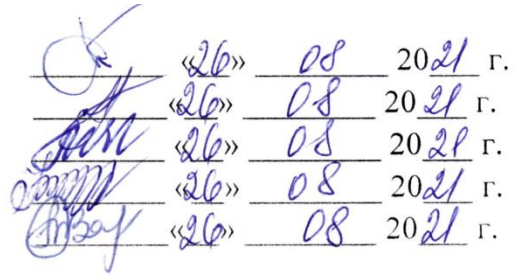 «26» 08 2021 г.
«26» 08 2021 г.
«26» 08 2021 г.
«26» 08 2021 г.
«26» 08 2021 г.